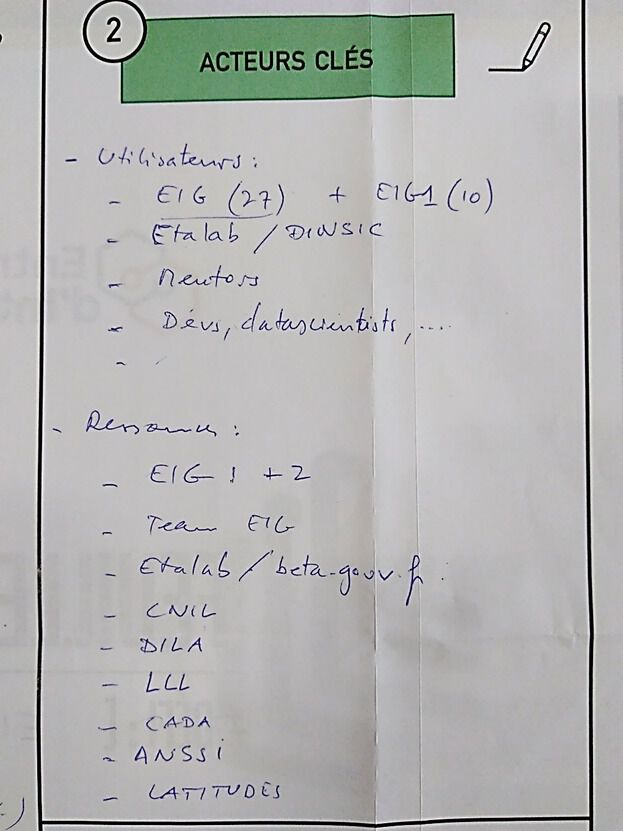 2
ACTEURS CLÉS
- Utilisateurs :
- EIG (27) + EIG1 (10)
- Etalab / DINSIC
- Mentors
- Dévs, datascientists, ....
-
- Ressources :
- EIG 1 + 2
- Team EIG
- Etalab / beta.gouv.fr
- CNIL
- DILA
- LCL
- CADA
- ANSSI
- LATITUDES